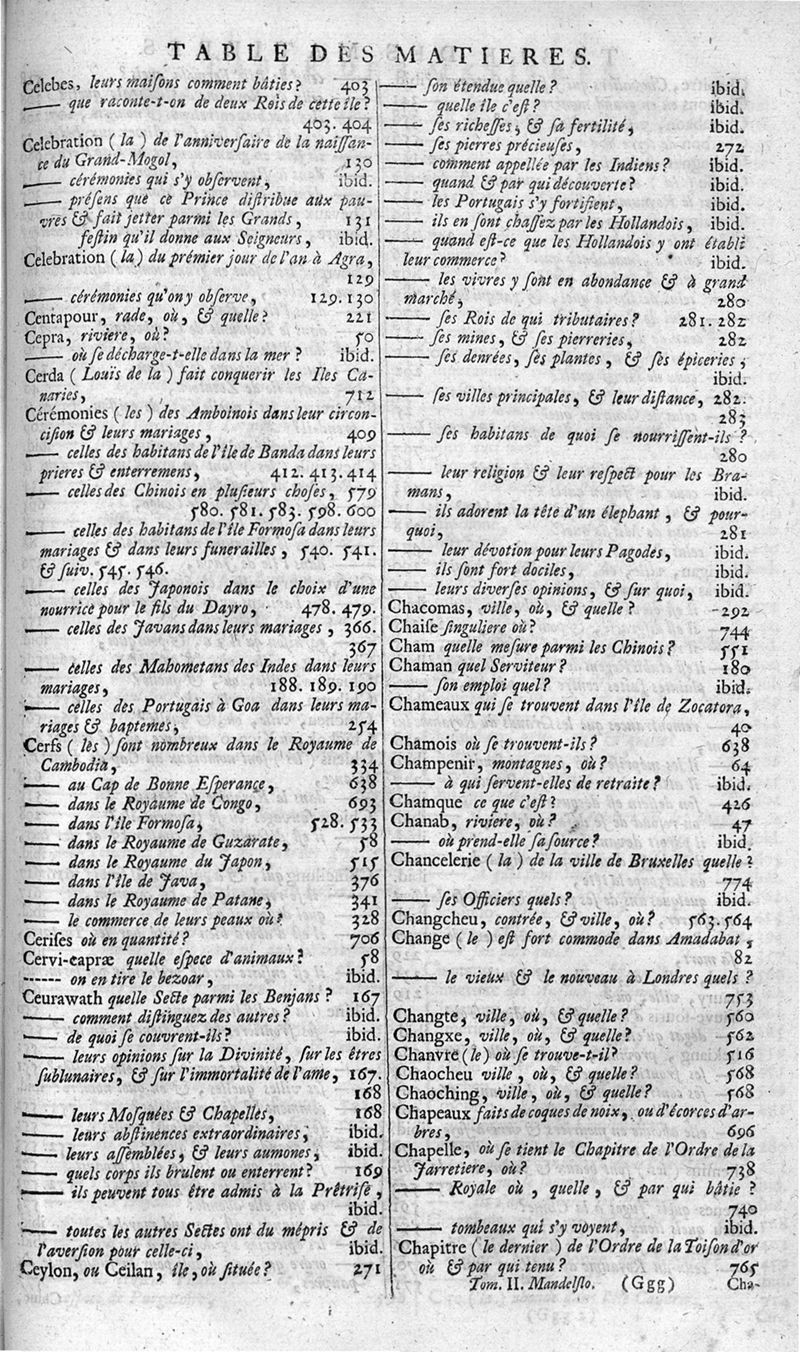 TABLE DES MATIERES.
Celebes, leurs maiſons comment bâties? 403
—— que raconte-t-on de deux Rois de cette île?
403. 404
Celebration (la) de l'anniverſaire de la naiſſan-
ce du Grand-Mogol, 130
—— cérémonies qui s'y obſervent, ibid.
—— préſens que ce Prince diſtribue aux pau-
vres & fait jetter parmi les Grands, 131
feſtin qu'il donne aux Seigneurs, ibid.
Celebration (la) du prémier jour de l'an à Agra,
129
—— cérémonies qu'on y obſerve, 129. 130
Centapour, rade, où, & quelle? 221
Cepra, riviere, où? 50
—— où ſe décharge-t-elle dans la mer? ibid.
Cerda (Louïs de la) fait conquerir les Iles Ca-
naries, 712
Cérémonies (les) des Amboinois dans leur circon-
ciſion & leurs mariages, 409
—— celles des habitans de l'île de Banda dans leurs
prieres & enterremens, 412. 413. 414
—— celles des Chinois en pluſieurs choſes, 579
580. 581. 583. 598. 600
—— celles des habitans de l'île Formoſa dans leurs
mariages & dans leurs funerailles, 540. 541.
& ſuiv. 545. 546.
—— celles des Japonois dans le choix d'une
nourrice pour le fils du Dayro, 478. 479.
—— celles des Javans dans leurs mariages, 366.
367
—— celles des Mahometans des Indes dans leurs
mariages, 188. 189. 190
—— celles des Portugais à Goa dans leurs ma-
riages & baptemes, 254
Cerfs (les) ſont nombreux dans le Royaume de
Cambodia, 334
—— au Cap de Bonne Eſperance, 638
—— dans le Royaume de Congo, 693
—— dans l'île Formoſa, 528. 533
—— dans le Royaume de Guzarate, 58
—— dans le Royaume du Japon, 515
—— dans l'île de Java, 376
—— dans le Royaume de Patane, 341
—— le commerce de leurs peaux où? 328
Ceriſes où en quantité? 706
Cervi-capræ quelle eſpece d'animaux? 58
------ on en tire le bezoar, ibid.
Ceurawath quelle Secte parmi les Benjans? 167
—— comment diſtinguez des autres? ibid.
—— de quoi ſe couvrent-ils? ibid.
—— leurs opinions ſur la Divinité, ſur les êtres
ſublunaires, & ſur l'immortalité de l'ame, 167.
168
—— leurs Moſquées & Chapelles, 168
—— leurs abſtinences extraordinaires, ibid.
—— leurs aſſemblées, & leurs aumones, ibid.
—— quels corps ils brulent ou enterrent? 169
—— ils peuvent tous être admis à la Prêtriſe,
ibid.
—— toutes les autres Sectes ont du mépris & de
l'averſion pour celle-ci, ibid.
Ceylon, ou Ceilan, île, où ſituée? 271
—— ſon étendue quelle? ibid.
—— quelle île c'eſt? ibid.
—— ſes richeſſes, & ſa fertilité, ibid.
—— ſes pierres précieuſes, 272
—— comment appellée par les Indiens? ibid.
—— quand & par qui découverte? ibid.
—— les Portugais s'y fortifient, ibid.
—— ils en ſont chaſſez par les Hollandois, ibid.
—— quand eſt-ce que les Hollandois y ont établi
leur commerce? ibid.
—— les vivres y ſont en abondance & à grand
marché, 280
—— ſes Rois de qui tributaires? 281. 282
—— ſes mines, & ſes pierreries, 282
—— ſes denrées, ſes plantes, & ſes épiceries,
ibid.
—— ſes villes principales, & leur diſtance, 282.
283
—— ſes habitans de quoi ſe nourriſſent-ils?
280
—— leur religion & leur reſpect pour les Bra-
mans, ibid.
—— ils adorent la tête d'un élephant, & pour-
quoi, 281
—— leur dévotion pour leurs Pagodes, ibid.
—— ils ſont fort dociles, ibid.
—— leurs diverſes opinions, & ſur quoi, ibid.
Chacomas, ville, où, & quelle? 292
Chaiſe ſinguliere où? 744
Cham quelle meſure parmi les Chinois? 551
Chaman quel Serviteur? 180
—— ſon emploi quel? ibid.
Chameaux qui ſe trouvent dans l'île de Zocatora,
40
Chamois où ſe trouvent-ils? 638
Champenir, montagnes, où? 64
—— à qui ſervent-elles de retraite? ibid.
Chamque ce que c'eſt? 426
Chanab, riviere, où? 47
—— où prend-elle ſa ſource? ibid.
Chancelerie (la) de la ville de Bruxelles quelle?
774
—— ſes Officiers quels? ibid.
Changcheu, contrée, & ville, où? 563. 564
Change (le) eſt fort commode dans Amadabat,
82
—— le vieux & le nouveau à Londres quels?
753
Changte, ville, où, & quelle? 560
Changxe, ville, où, & quelle? 562
Chanvre (le) où ſe trouve-t-il? 516
Chaocheu ville, où, & quelle? 568
Chaoching, ville, où, & quelle? 568
Chapeaux faits de coques de noix, ou d'écorces d'ar-
bres, 696
Chapelle, où ſe tient le Chapitre de l'Ordre de la
Jarretiere, où? 738
—— Royale où, quelle, & par qui bâtie?
740
—— tombeaux qui s'y voyent, ibid.
Chapitre (le dernier) de l'Ordre de la Toiſon d'or
où & par qui tenu? 765
Tom. II. Mandelſlo. (Ggg) Cha-